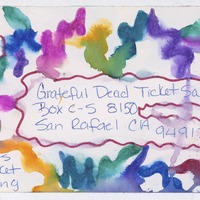 Grateful Dead Ticket Sa
Box C-S 8150
San Rafael CA
9491
s
ket
ng